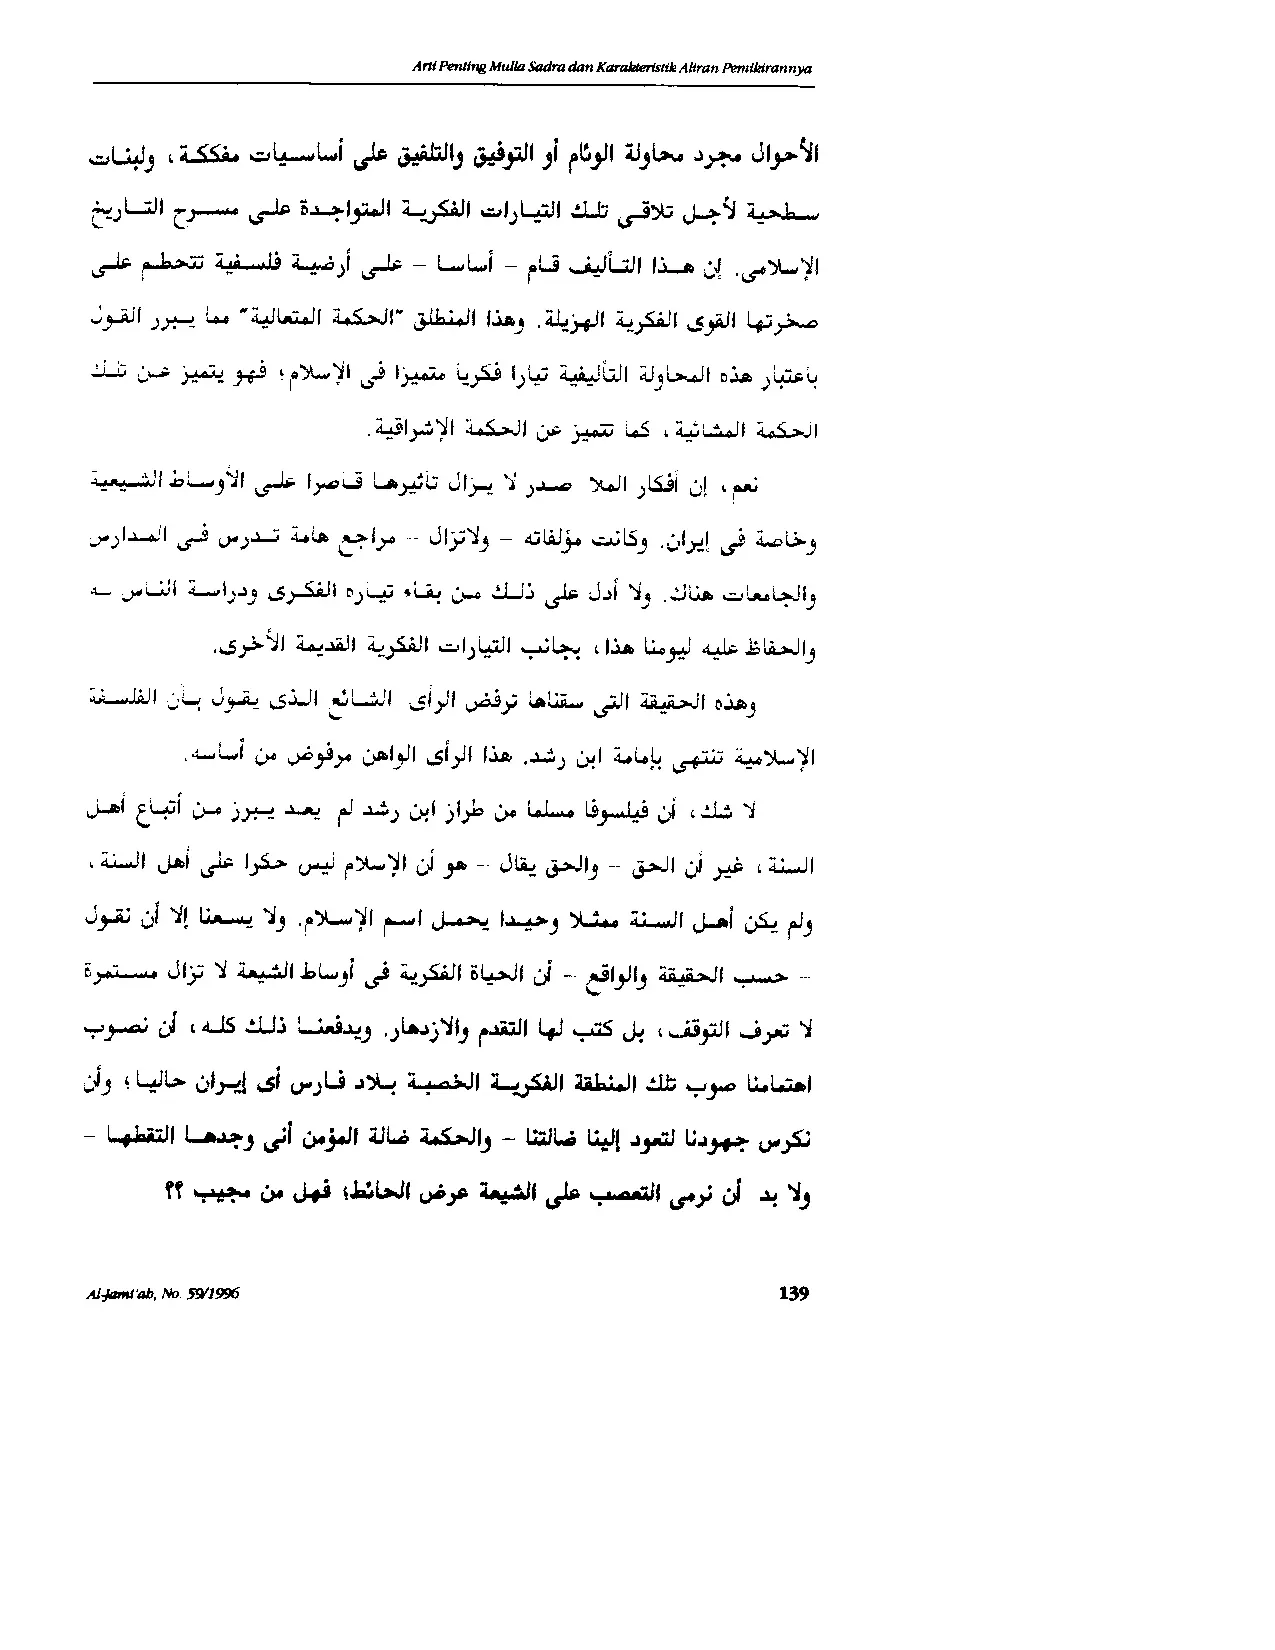 Arti Penting Mulla Sadra dan Karakteristik Aliran Pemikirannya
الأحوال مجرد محاولة الوئام أو التوفيق والتلفيق على أساسيات مفككة، ولبنات
سطحية لأجل تلاقى تلك التيارات الفكرية المتواجدة على مسرح التاريخ
الإسلامى. إن هذا التأليف قام – أساسا – على أرضية فلسفية تتحطم على
صخرتها القوى الفكرية الهزيلة. وهذا المنطلق "الحكمة المتعالية" مما يبرر القول
باعتبار هذه المحاولة التأليفية تيارا فكريا متميزا فى الإسلام؛ فهو يتميز عن تلك
الحكمة المشائية، كما تتميز عن الحكمة الإشراقية.
نعم، إن أفكار الملا صدر لا يزال تأثيرها قاصرا على الأوساط الشيعية
وخاصة فى إيران. وكانت مؤلفاته – ولاتزال – مراجع هامة تدرس فى المدارس
والجامعات هناك. ولا أدل على ذلك من بقاء تياره الفكرى ودراسة الناس له
والحفاظ عليه ليومنا هذا، بجانب التيارات الفكرية القديمة الأخرى.
وهذه الحقيقة التى سقناها ترفض الرأى الشائع الذى يقول بأن الفلسفة
الإسلامية تنتهى بإمامة ابن رشد. هذا الرأى الواهن مرفوض من أساسه.
لا شك، أن فيلسوفا مسلما من طراز ابن رشد لم يعد يبرز من أتباع أهل
السنة، غير أن الحق – والحق يقال – هو أن الإسلام ليس حكرا على أهل السنة،
ولم يكن أهل السنة ممثلا وحيدا يحمل اسم الإسلام. ولا يسعنا إلا أن نقول
– حسب الحقيقة والواقع – أن الحياة الفكرية فى أوساط الشيعة لا تزال مستمرة
لا تعرف التوقف، بل كتب لها التقدم والازدهار. ويدفعنا ذلك كله، أن نصوب
اهتمامنا صوب تلك المنطقة الفكرية الخصبة بلاد فارس أى إيران حاليا؛ وأن
نكرس جهودنا لتعود إلينا ضالتنا – والحكمة ضالة المؤمن أنى وجدها التقطها –
ولا بد أن نرمى التعصب على الشيعة عرض الحائط؛ فهل من مجيب ؟؟
Al-Jami'ah, No. 59/1996
139